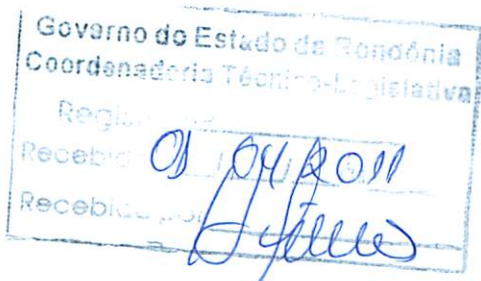 Governo do Estado de Rondônia
Coordenadoria Técnico-Legislativa
Recebido 01 /04/2011
Recebido por